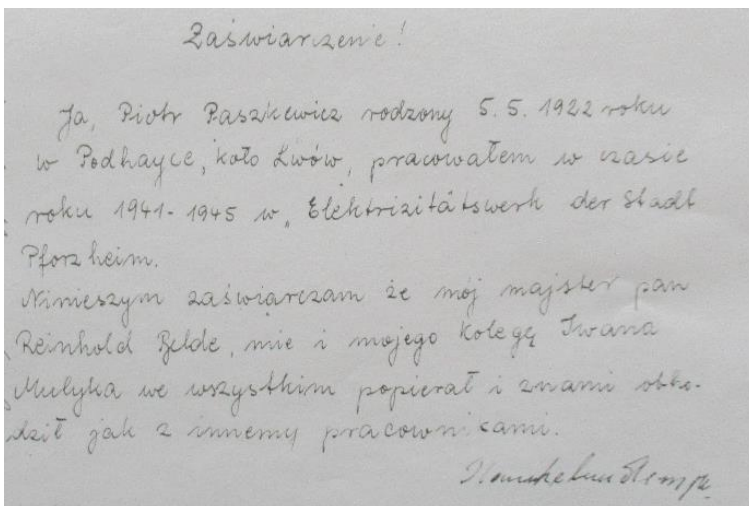 Zaświarczenie!
Ja, Piotr Paszkewicz rodzony 5.5.1922 roku
w Podhayce, koło Lwów, pracowałem w czasie
roku 1941-1945 w „Elektrizitätswerk der Stadt
Pforzheim.
Ninieszym zaświarczam że mój majster pan
Reinhold Belde, mie i mojego kolegę Iwana
Mulyka we wszystkim popierał i znami obho-
dził jak z innemy pracownikami.